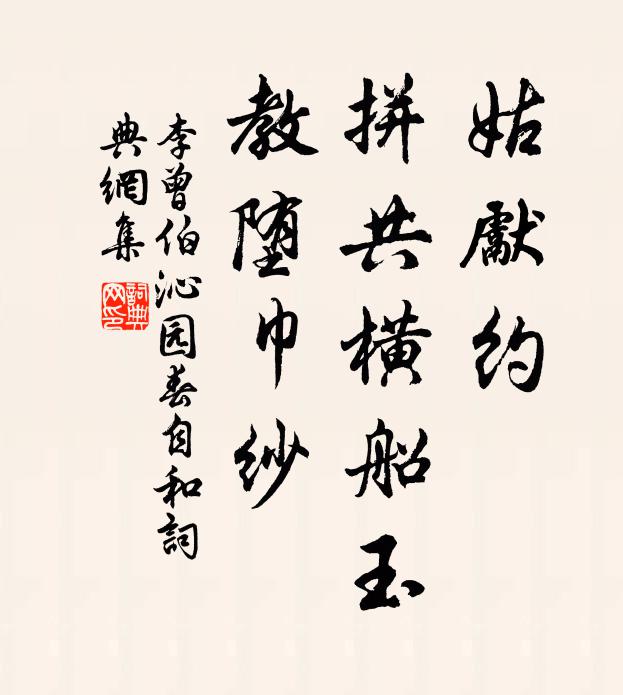 姑獻約
拼共橫船玉
教墮巾紗
李曾伯沁园春自和詞
典網集
詞典
网印